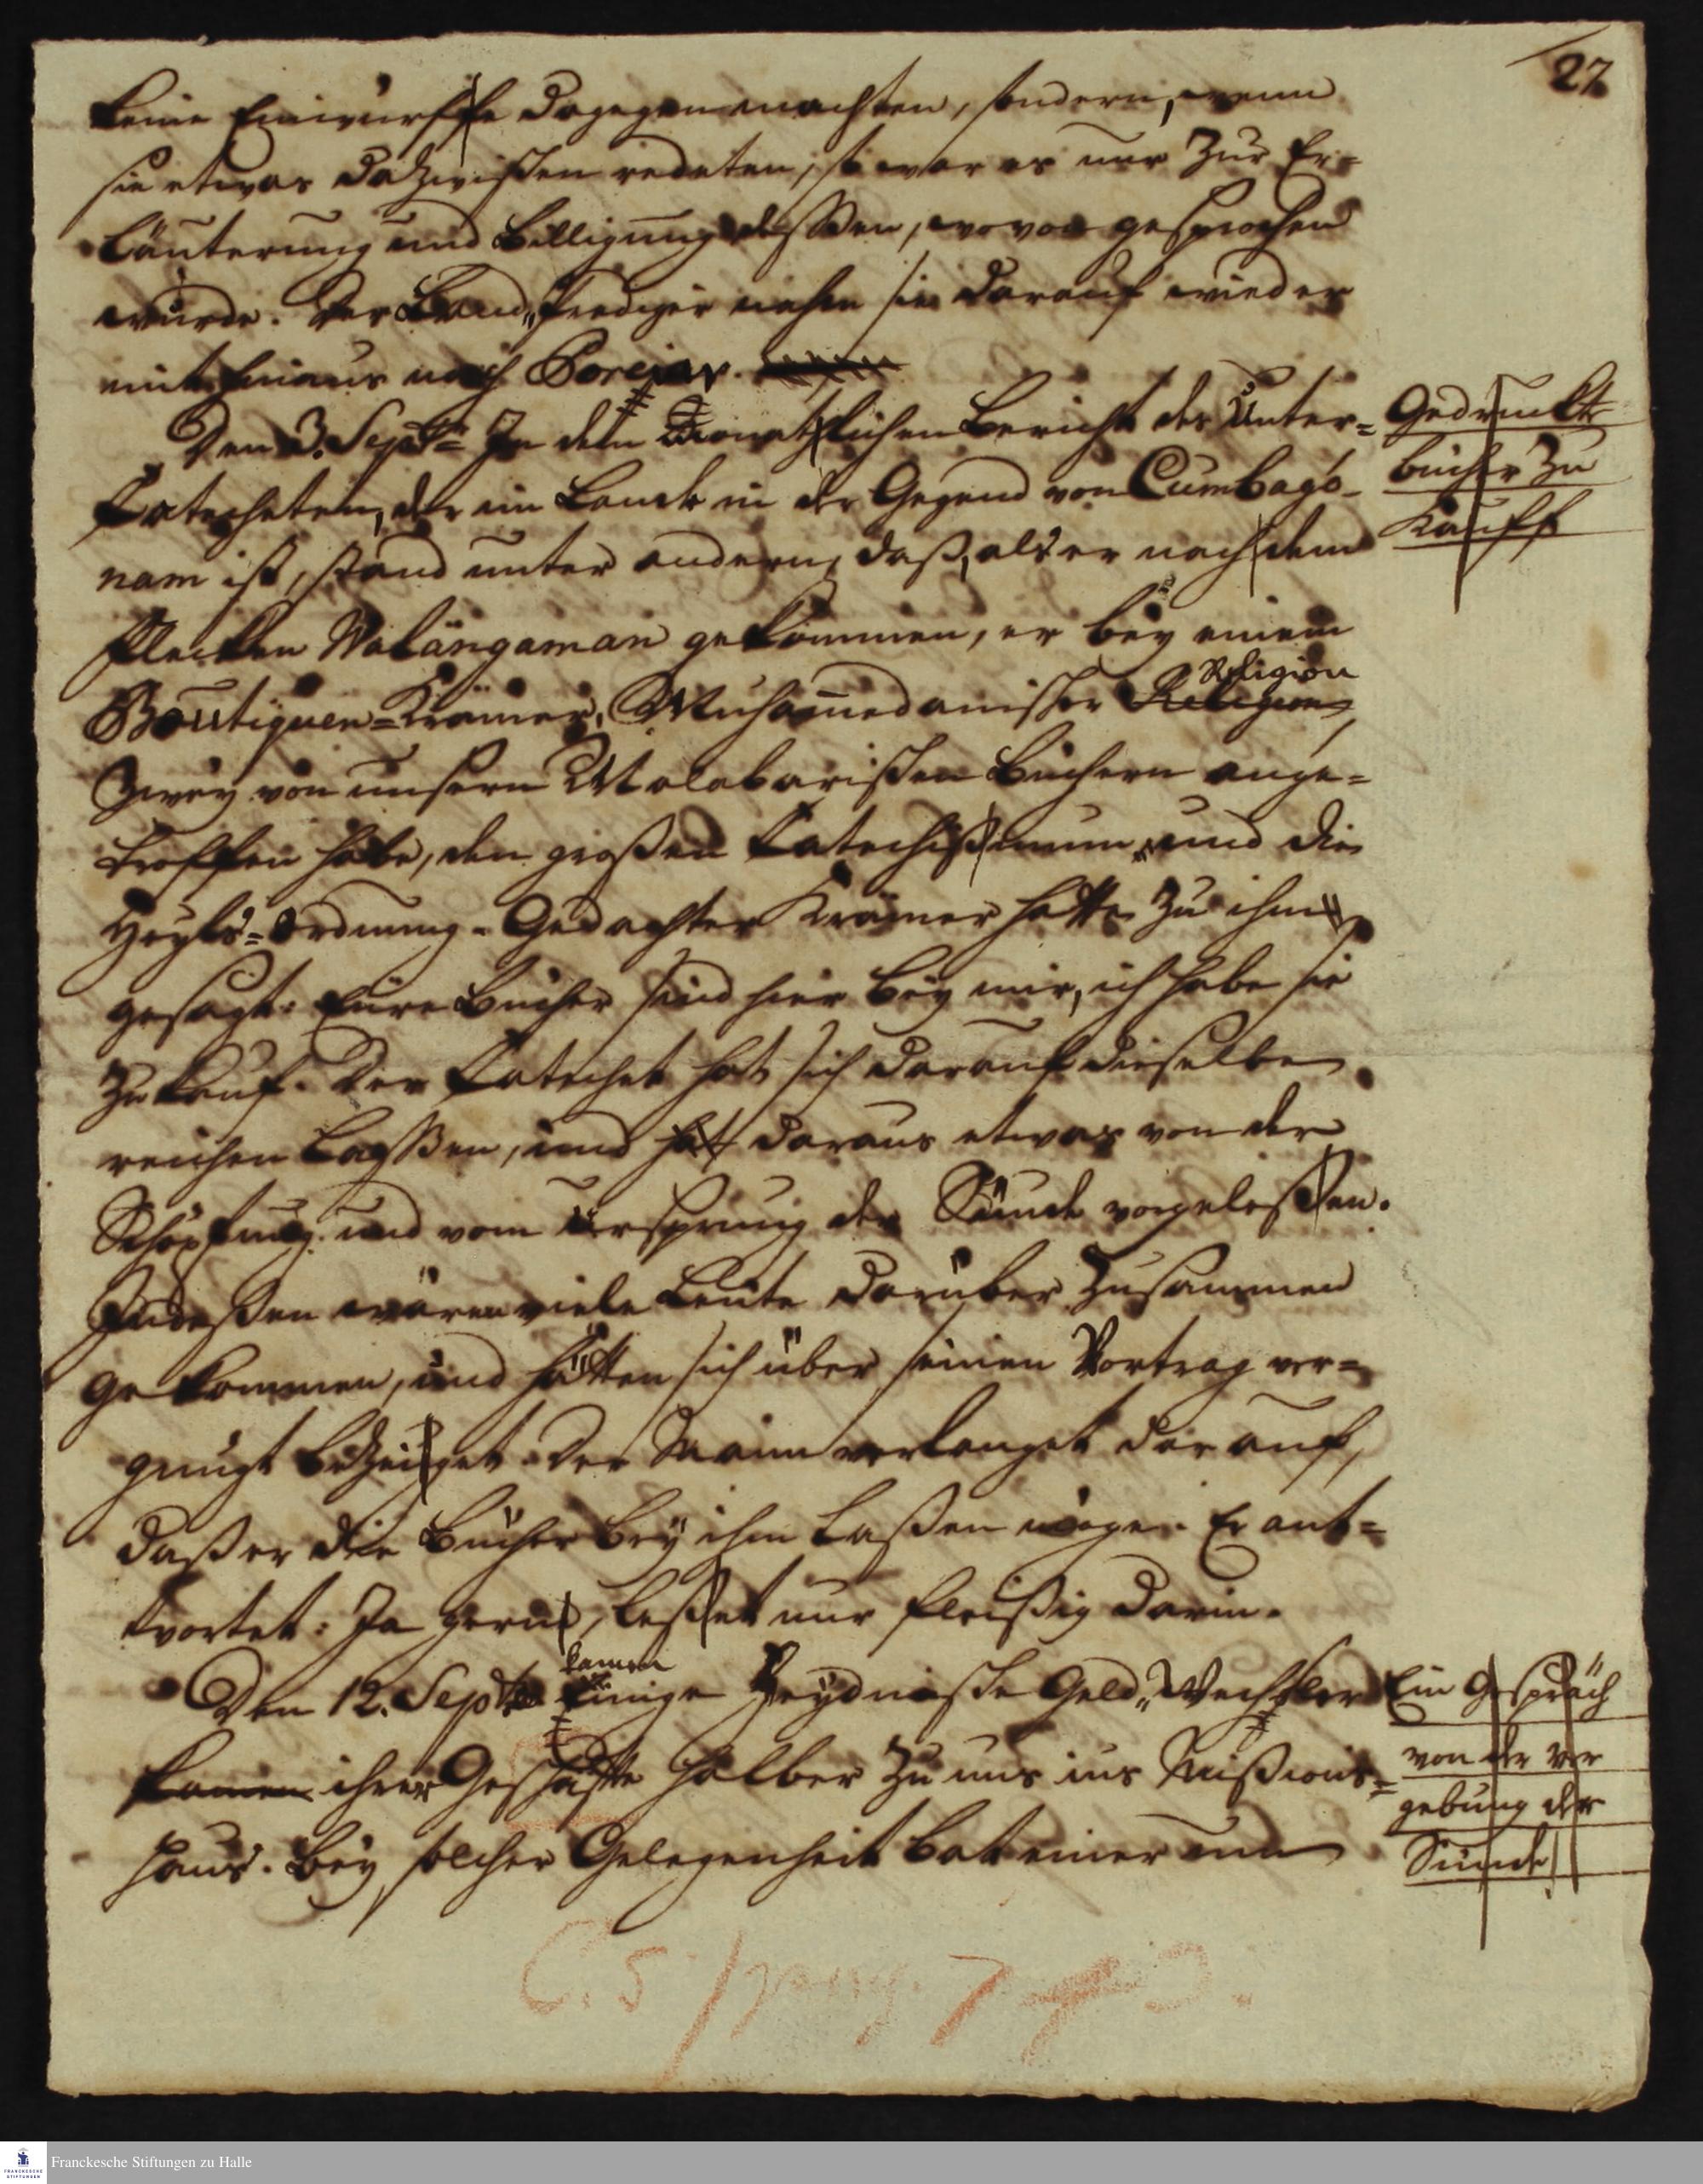 27
keine Einwürffe dagegen machten, sondern, wenn
sie etwas dazwischen redeten, so war es nur zur Er=
läuterung und Billigung deßen, wovon gesprochen
wurde. Der Land„Prediger nahm sie darauf wieder
mit hinaus nach Poreiar.
Den 3. Sept. In dem Monathlichen Bericht des Unter=
Catecheten, der im Lande in der Gegend von Cumbagó-
nam ist, stand unter andern, daß, als er nach dem
Flecken Walängaman gekommen, er bey einem
Boutiquen=Krämer, Muhammedanischer Religion
Religion,
zwey von unsern Malabarischen Büchern ange=
troffen habe, den großen Catechißmum, und die
Heyls=Ordnung. Gedachter Krämer hätte zu ihm
gesagt: Eure Bücher sind hier bey mir, ich habe sie
zu kauf. Der Catechet hat sich darauf dieselben
reichen laßen, und hat daraus etwas von der
Schöpfung und vom Ursprung der Sünde vorgeleßen.
Indeßen wären viele Leute darüber zusammen
gekommen, und hätten sich über seinen Vortrag ver=
gnügt bezeiget. Der Mann verlanget darauf,
daß er die Bücher bey ihm laßen möge. Er ant=
wortet: Ja gern, leßet nur fleißig darin.
Den 12. Sept. kamen Einige Heydnische Geld„Wechsler
kamen ihrer Geschäfte halber zu uns ins Mißions=
Haus. Bey solcher Gelegenheit bat einer um
Gedruckte
bücher zu
Kauff
Ein Gespräch
von der ver
gebung der
Sünde
Franckesche Stiftungen zu Halle